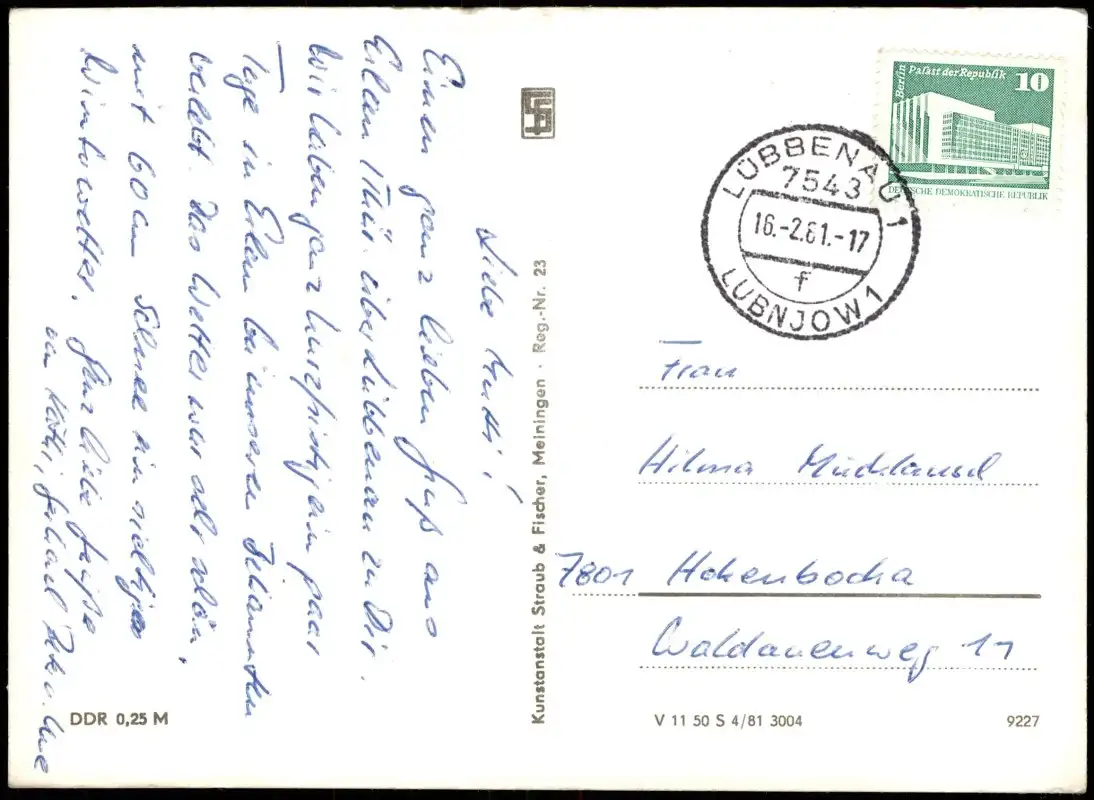 Liebe Mutti!
Einen ganz lieben Gruß aus
Erlau Thür. über Lübbenau zu Dir.
Wir haben ganz kurzfristig ein paar
Tage in Erlau bei unseren Bekannten
verlebt. Das Wetter war sehr schön,
mit 60 cm Schnee ein richtiges
Winterwetter. Ganz liebe Grüße
von Käthi, Gerhard
Kunstanstalt Straub & Fischer, Meiningen · Reg.-Nr. 23
DDR 0,25 M
Berlin Palast der Republik 10
DEUTSCHE DEMOKRATISCHE REPUBLIK
LÜBBENAU 1
7543
16.-2.81.-17
f
LUBNJOW 1
Frau
Hilma
7801 Hohenbocka
Waldauenweg 11
V 11 50 S 4/81 3004
9227